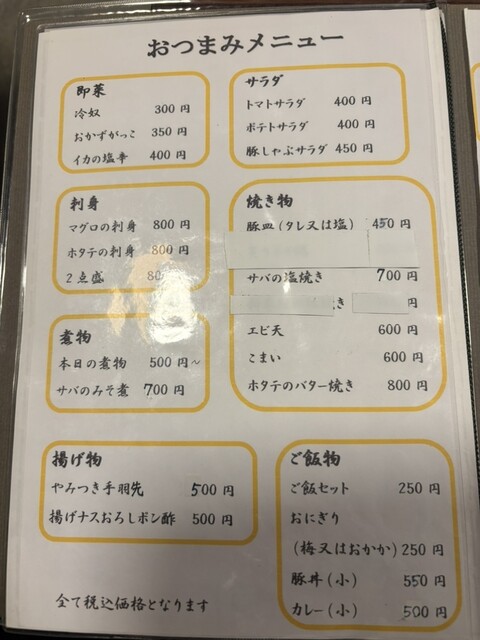 おつまみメニュー
即菜
冷奴 300 円
おかずがっこ 350 円
イカの塩辛 400 円
サラダ
トマトサラダ 400 円
ポテトサラダ 400 円
豚しゃぶサラダ 450 円
刺身
マグロの刺身 800 円
ホタテの刺身 800 円
2点盛
焼き物
豚皿(タレ又は塩) 450 円
サバの塩焼き 700 円
き 円
エビ天 600 円
こまい 600 円
ホタテのバター焼き 800 円
煮物
本日の煮物 500 円~
サバのみそ煮 700 円
揚げ物
やみつき手羽先 500 円
揚げナスおろしポン酢 500 円
ご飯物
ご飯セット 250 円
おにぎり
(梅又はおかか) 250 円
豚丼(小) 550 円
カレー(小) 500 円
全て税込価格となります